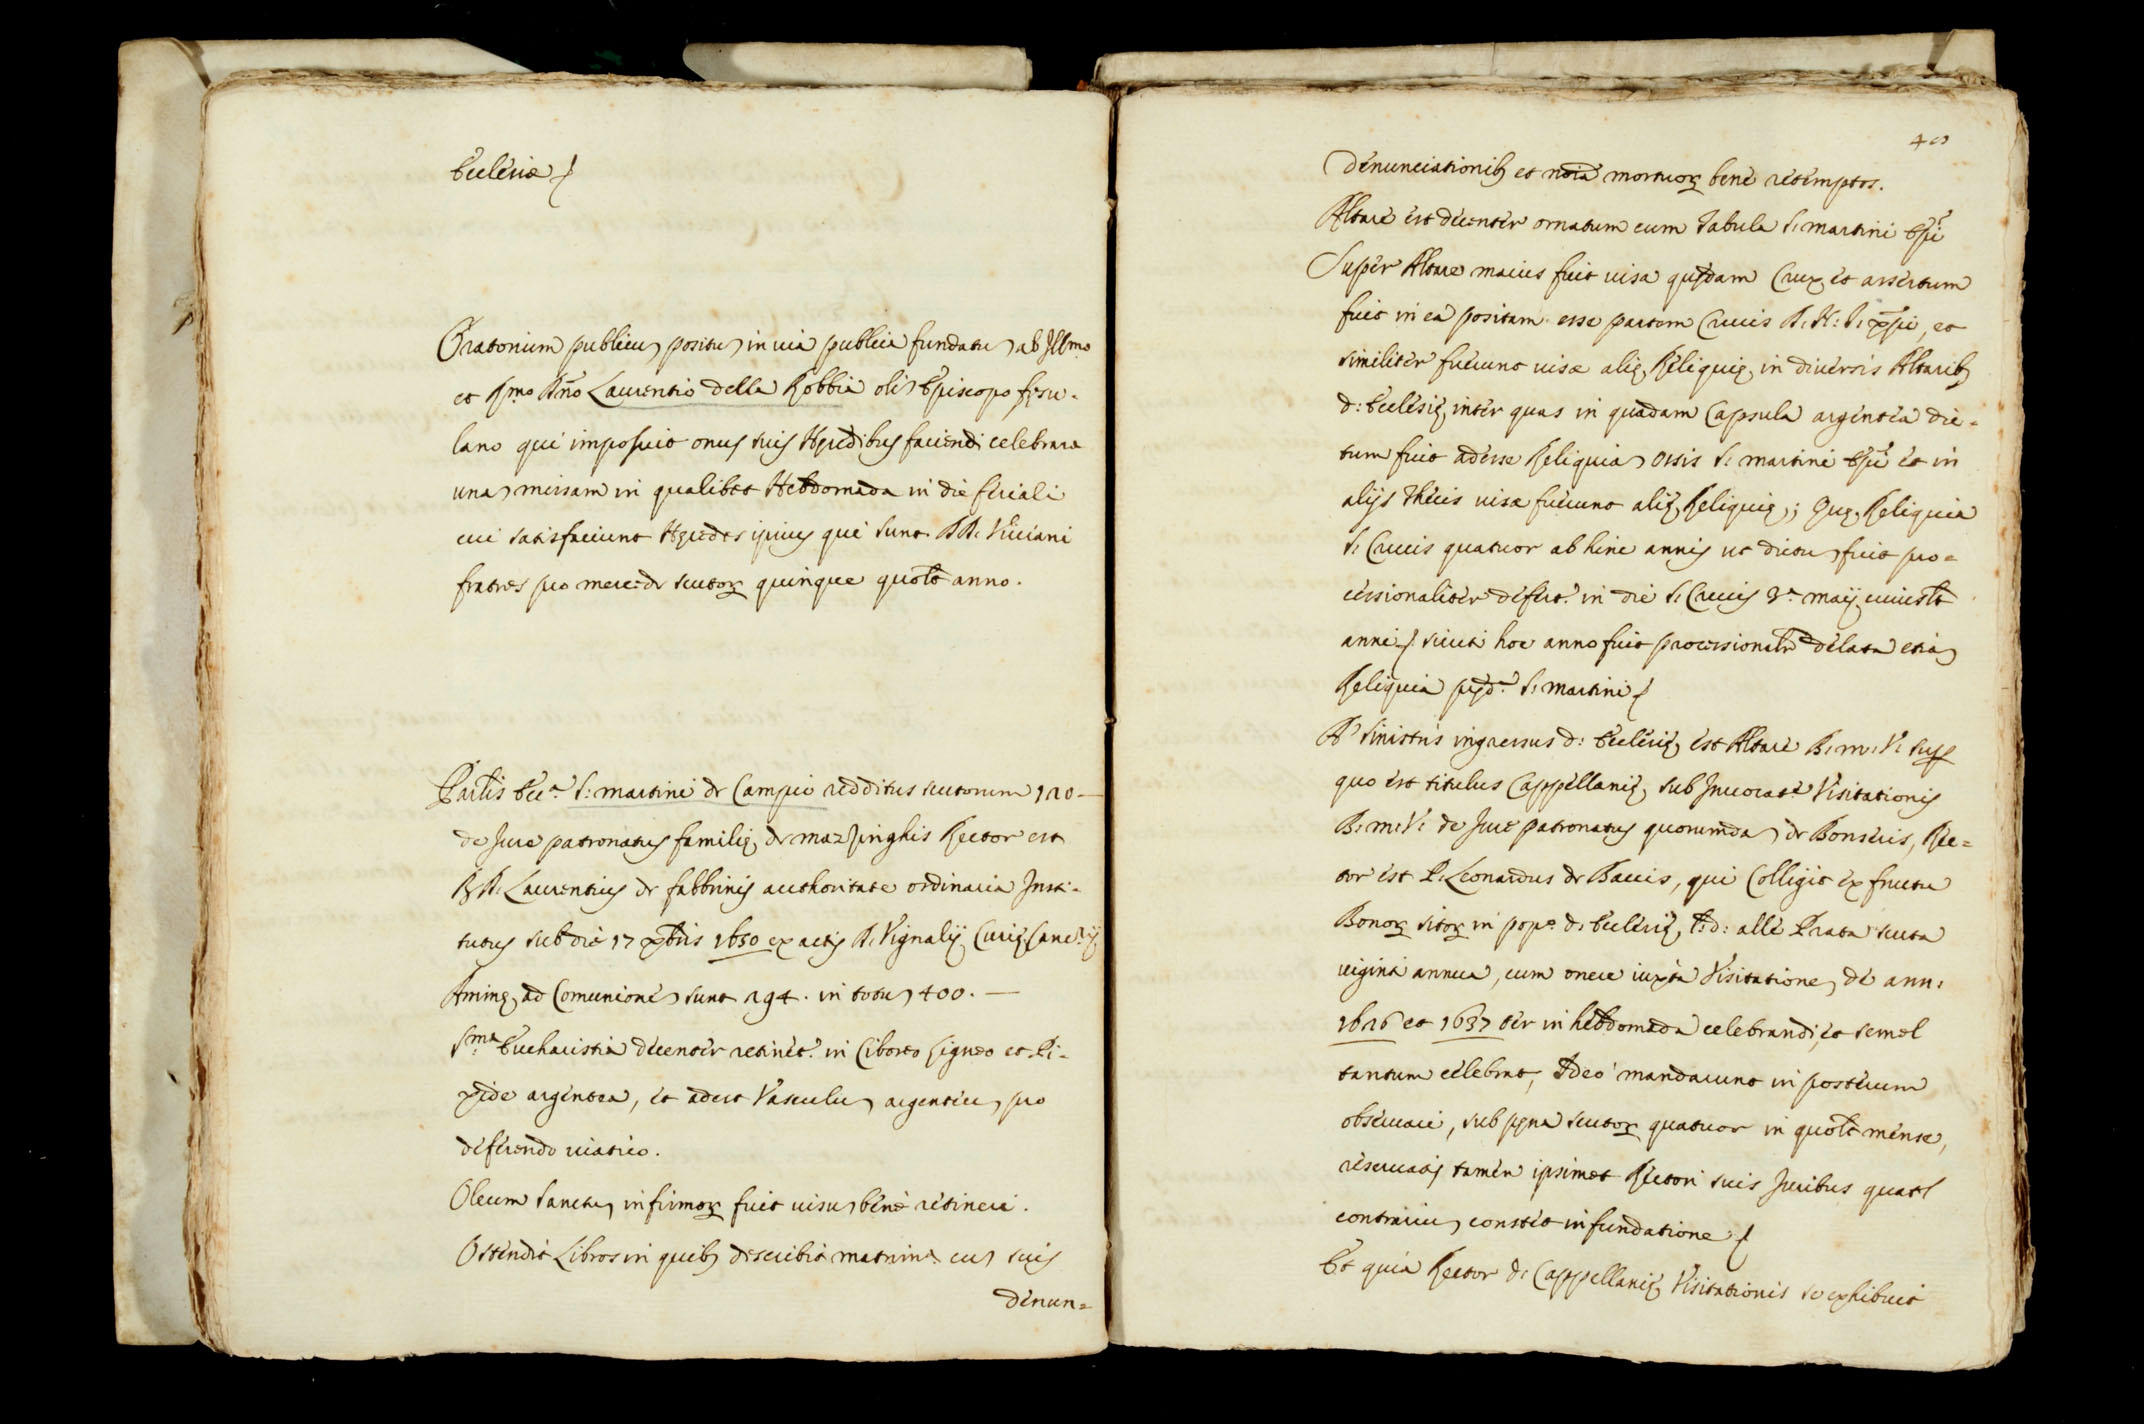 Ecclesiæ
Oratorium publicũ positũ in via publica fundatũ ab Illmo
et Rmo Dño Laurentio della Robbia olĩ Episcopo fęsu-
lano qui imposuit onus suis Hęredibus faciendi celebrare
unã missam in qualibet Hebdomada in die feriali
cui satisfaciunt Hęredes ipsius qui sunt DD. Viviani
fratres pro mercede scutoꝝ quinque quolt anno.
Partis Ecca. S: Martini de Campi redditus scutorum 120-
de Jure patronatus familię de Mazzinghis Rector est
R. D. Laurentius de fabbrinis authoritate ordinaria Insti-
tutus sub die 17 xbris 1650 ex actis D. Vignalij Curię Cancrij
Animę ad Comunionẽ sunt 294. in totũ 400. —
Sma Eucharistia decenter retinet. in Ciborio ligneo et Pi-
xide argentea, et adest Vasculũ argenteũ pro
deferendo viatico.
Oleum Sanctũ infirmoꝝ fuit visũ bene retineri.
Ostendit Libros in quibꝫ describit matrima. cũ suis
denun=
40
denunciationibꝫ et noia mortuoꝝ bene retemptos.
Altare est decenter ornatum cum Tabula S. Martini Epi
Super Altare maius fuit visa quędam Crux et assertum
fuit in ea positam esse partem Crucis D. N. J. Xpi, et
similiter fuerunt visæ alię Reliquię in diversis Altaribꝫ
d: Ecclesię inter quas in quadam Capsula argentea dic-
tum fuit adesse Reliquiã Ossis S. Martini Epi et in
alijs Thecis visæ fuerunt alię Reliquię; Quę Reliquia
S. Crucis quatuor ab hinc annis ut dictũ fuit pro=
cessionaliter defert. in die S. Crucis 3a maij cuiuslt
anni sicuti hoc anno fuit processionalr delata etiã
Reliquia pręda. S. Martini
A Sinistris ingressus d: Ecclesię est Altare B. M. V. sup
quo est titulus Cappellanię sub Invocate Visitationis
B. M. V. de Jure patronatus quorumdã de Bonseris, Rec=
tor est P. Leonardus de Baccis, qui Colligit ex fructu
Bonoꝝ sitoꝝ in popo d. Ecclesię l: d: alle Prata scuta
viginti annua, cum onere iuxta Visitationẽ de ann:
1626 et 1637 ter in hebdomada celebrandi, et semel
tantum celebrat, Ideo mandarunt in posterum
observari, sub pęna scutoꝝ quatuor in quolt mense,
reservatis tamen ipsimet Rectori suis Juribus quatl
contrariũ constet in fundatione
Et quia Rector d. Cappellanię Visitationis se exhibuit